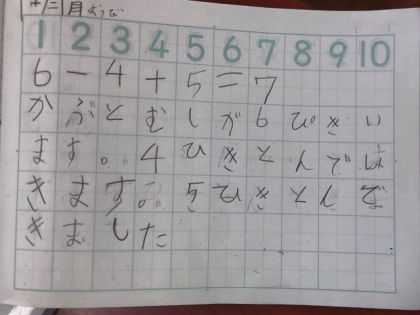 月ようび
1 2 3 4 5 6 7 8 9 10
6－4＋5＝7
かぶとむしが6ぴきい
ます。4ひきとんでは
きます。5ひきとんで
きました